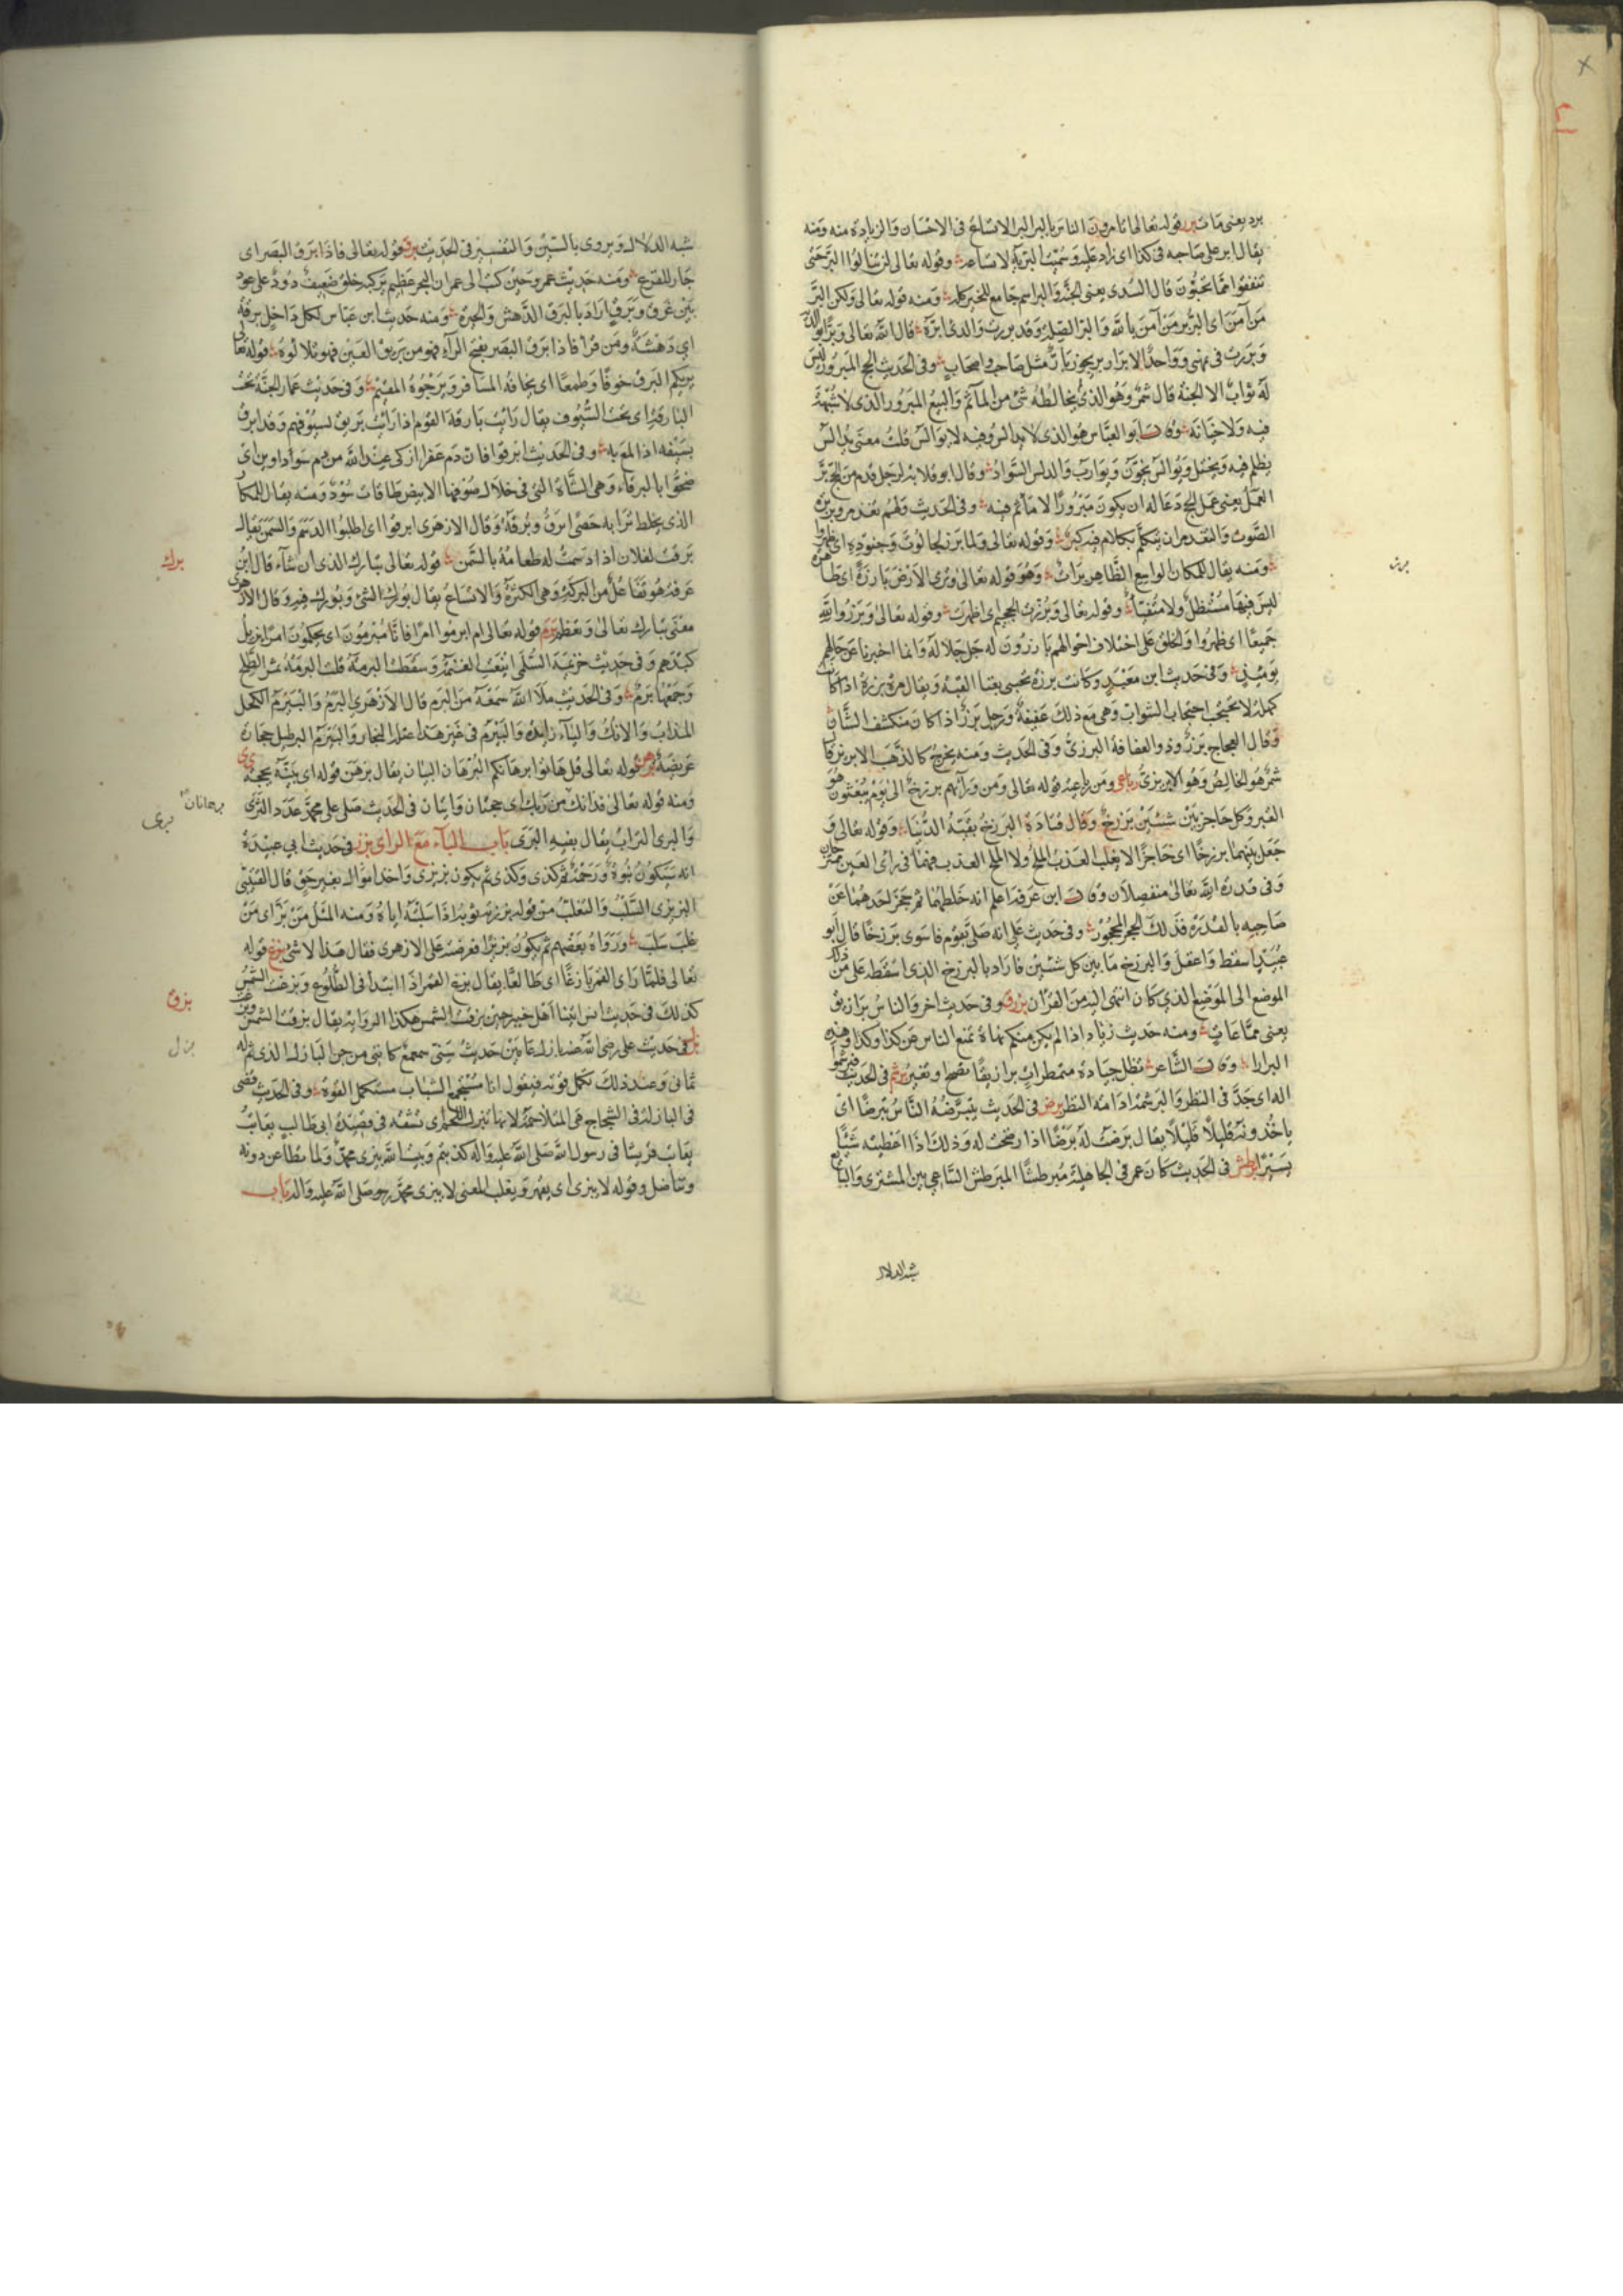 برد يعنى مات برر قوله تعالى اتامرون الناس بالبر البر الاتساع فى الاحسان والزيادة منه ومنه
يقال ابر على صاحبه فى كذا اى زاد عليه وسميت البرية لاتساعها وقوله تعالى لن تنالوا البر حتى
تنفقوا مما تحبون قال السدى يعنى الجنة والبر اسم جامع للخير كله ومنه قوله تعالى ولكن البر
من آمن اى البر بر من آمن بالله والبر الصلة وقد بررت والدى ابره قال الله تعالى وبرا بوالدتى
وبررت فى يمينى وواحد الابرار بر يجوز بار مثل صاحب واصحاب وفى الحديث الحج المبرور ليس
له ثواب الا الجنة قال شمر وهو الذى لا يخالطه شئ من المآثم والبيع المبرور الذى لا شبهة
فيه ولا خيانة وقال ابو العباس هو الذى لا يدالس فيه ولا يوالس قلت معنى يدالس
يظلم فيه ويختل ويوالس يخون ويوارب والدلس السواد وقال ابو قلابة لرجل قدم من الحج بر
العمل يعنى عمل الحج دعا له ان يكون مبرورا لا ماثم فيه وفى الحديث ولهم تغذمر وبربرة
الصوت والتغذمر ان يتكلم بكلام فيه كبر وقوله تعالى ولما برزوا لجالوت وجنوده اى ظهروا
ومنه يقال للمكان الواسع الظاهر براز وهو قوله تعالى وترى الارض بارزة اى ظاهرة
ليس فيها مستظل ولا متفيا وقوله تعالى وبرزت الجحيم اى اظهرت وقوله تعالى وبرزوا لله
جميعا اى ظهروا والخلق على اختلاف احوالهم بارزون له جل جلاله وانما اخبرنا عن حالهم
يومئذ وفى حديث ام معبد وكانت برزة تحتبى بفناء القبة ويقال امرأة برزة اذا كانت
كهلة لا تحتجب احتجاب الشواب وهى مع ذلك عفيفة ورجل برز اذا كان منكشف الشان
وقال العجاج برز وذو العفافة البرزى وفى الحديث ومنه يخرج كالذهب الابريز قال
شمر هو الخالص وهو الابرزى رباعى ومن باب عنه قوله تعالى ومن ورآئهم برزخ الى يوم يبعثون هو
القبر وكل حاجز بين شيئين برزخ وقال قتادة البرزخ بقية الدنيا وقوله تعالى و
جعل بينهما برزخا اى حاجزا لا يغلب العذب الملح ولا الملح العذب فهما فى راى العين ممتزجان
وفى قدرة الله تعالى منفصلان وقال ابن عرفة اعلم انه خلطهما ثم حجز احدهما عن
صاحبه بالقدرة فذلك الحجر المحجور وفى حديث على انه صلى بقوم فاسوى برزخا قال ابو
عبيد اسقط واغفل والبرزخ ما بين كل شيئين فاراد بالبرزخ الذى اسقطه على من ذلك
الموضع الى الموضع الذى كان انتهى اليه من القرآن برزق وفى حديث اخر والناس برازيق
يعنى جماعات ومنه حديث زياد اذا لم يكن منكم نهاة تمنع الناس عن كذا وكذا وهذه
البرازق وقال الشاعر تظل جياده متمطرات برازيقا تصبح او تغير برشم فى الحديث فبرشموا
اله اى جد فى النظر والبرشمة ادامة النظر برض فى الحديث يتبرضه الناس تبرضا اى
ياخذونه قليلا قليلا يقال برضت له برضا اذا رضخت له وذلك اذا اعطيته شيئا
يسيرا برطش فى الحديث كان عمر فى الجاهلية مبرطشا المبرطش الساعى بين المشترى والبائع
شبه الدلال
شبه الدلال ويروى بالسين والتفسير فى الحديث برق قوله تعالى فاذا برق البصر اى
حار للفزع ومنه حديث عمرو حين كتب الى عمر ان البحر عظيم يركبه خلق ضعيف دود على عود
بين غرق وبرق اراد بالبرق الدهش والحيرة ومنه حديث ابن عباس لكل داخل برقة
اى دهشة ومن قرا فاذا برق البصر بفتح الرآء فهو من بريق العين فهو تلالؤه قوله تعالى
يريكم البرق خوفا وطمعا اى يخافه المسافر ويرجوه المقيم وفى حديث عمار الجنة تحت
البارقة اى تحت السيوف يقال رايت بارقة القوم اذا رايت بريق لسيوفهم وقد ابرق
بسيفه اذا لمع به وفى الحديث ابرقوا فان دم عفراء ازكى عند الله من دم سوداوين اى
ضحوا بالبرقاء وهى الشاة التى فى خلال صوفها الابيض طاقات سود ومنه يقال للمكان
الذى يخلط ترابه حصى ابرق وبرقة وقال الازهرى ابرقوا اى اطلبوا الدسم والسمن يقال
برقت لفلان اذا دسمت له طعامه بالسمن قوله تعالى تبارك الذى ان شآء قال ابن
برك
عرفة هو تفاعل من البركة وهى الكثرة والاتساع يقال بورك الشئ وبورك فيه وقال الازهرى
معنى تبارك تعالى وتعظم برم قوله تعالى ام ابرموا امرا فانا مبرمون اى يحكمون امرا نزيل
كيدهم وفى حديث خزيمة السلمى اينعت العنمة وسقطت البرمة قلت البرمة ثمر الطلح
وجمعها برم وفى الحديث ملأ الله سمعه من البرم قال الازهرى البرم والبيرم الكحل
المذاب والآنك والياء زايدة والبيرم فى غير هذا عتلة النجار والبيرم البرطيل حجارة
عريضة برهن قوله تعالى قل هاتوا برهانكم البرهان البيان يقال برهن قوله اى بينه بحجة
ومنه قوله تعالى فذانك برهانان من ربك اى حجتان وآيتان فى الحديث صلى على محمد عدد الثرى
برهانان
برى
والبرى التراب يقال بفيه البرى باب البآء مع الزاى بزز فى حديث ابى عبيدة
انه ستكون نبوة ورحمة ثم كذى وكذى ثم يكون بزبزى واخذ اموال بغير حق قال القتيبى
البزبزى السلب والتغلب من قوله بززته ثوبه اذا سلبته اياه ومنه المثل من عز بز اى من
غلب سلب ورواه بعضهم ثم يكون بزبزا فعرضته على الازهرى فقال هذا لا شئ بزغ قوله
تعالى فلما راى القمر بازغا اى طالعا يقال بزغ القمر اذا ابتدأ فى الطلوع وبزغت الشمس
كذلك فى حديث انس اتينا اهل خيبر حين بزقت الشمس هكذا الرواية يقال بزقت الشمس وبزغت
بزق
بزل فى حديث على رضى الله عنه بازل عامين حديث سنى سمعمع كاننى من جن البازل الذى تم له
بزل
ثمانى وعند ذلك تكمل قوته فيقول انا مستجمع الشباب مستكمل القوة وفى الحديث قضى
فى البازلة فى الشجاج هى المتلاحمة لانها تبزل اللحم اى تشقه فى قصيدة ابى طالب يعاتب
يعاتب قريشا فى رسول الله صلى الله عليه وآله كذبتم وبيت الله يبزى محمد ولما نطاعن دونه
ونناضل وقوله لا يبزى اى يقهر ويغلب المعنى لا يبزى محمد رجو صلى الله عليه وآله باب